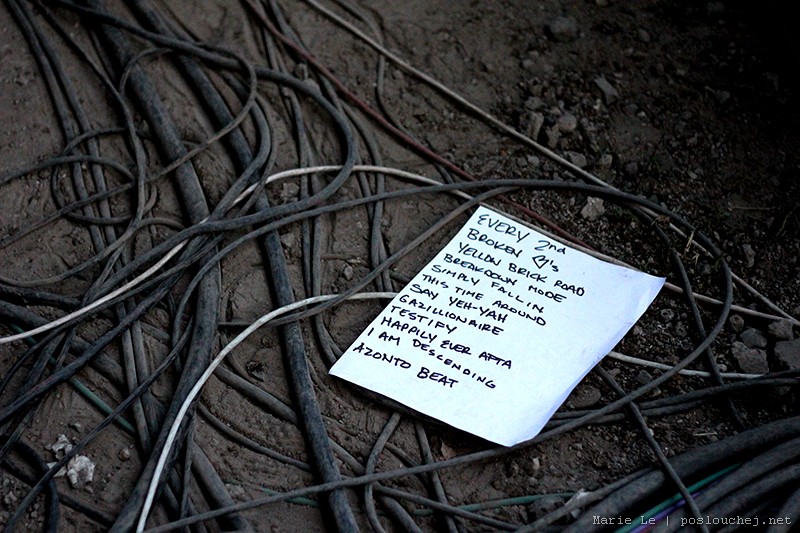 EVERY 2nd
BROKEN ♡'s
YELLOW BRICK ROAD
BREAKDOWN MODE
SIMPLY FALL IN
THIS TIME AROUND
SAY YEH-YAH
GAZILLIONAIRE
TESTIFY
HAPPLY EVER AFTA
I AM DESCENDING
AZONTO BEAT
Marie Le | poslouchej.net